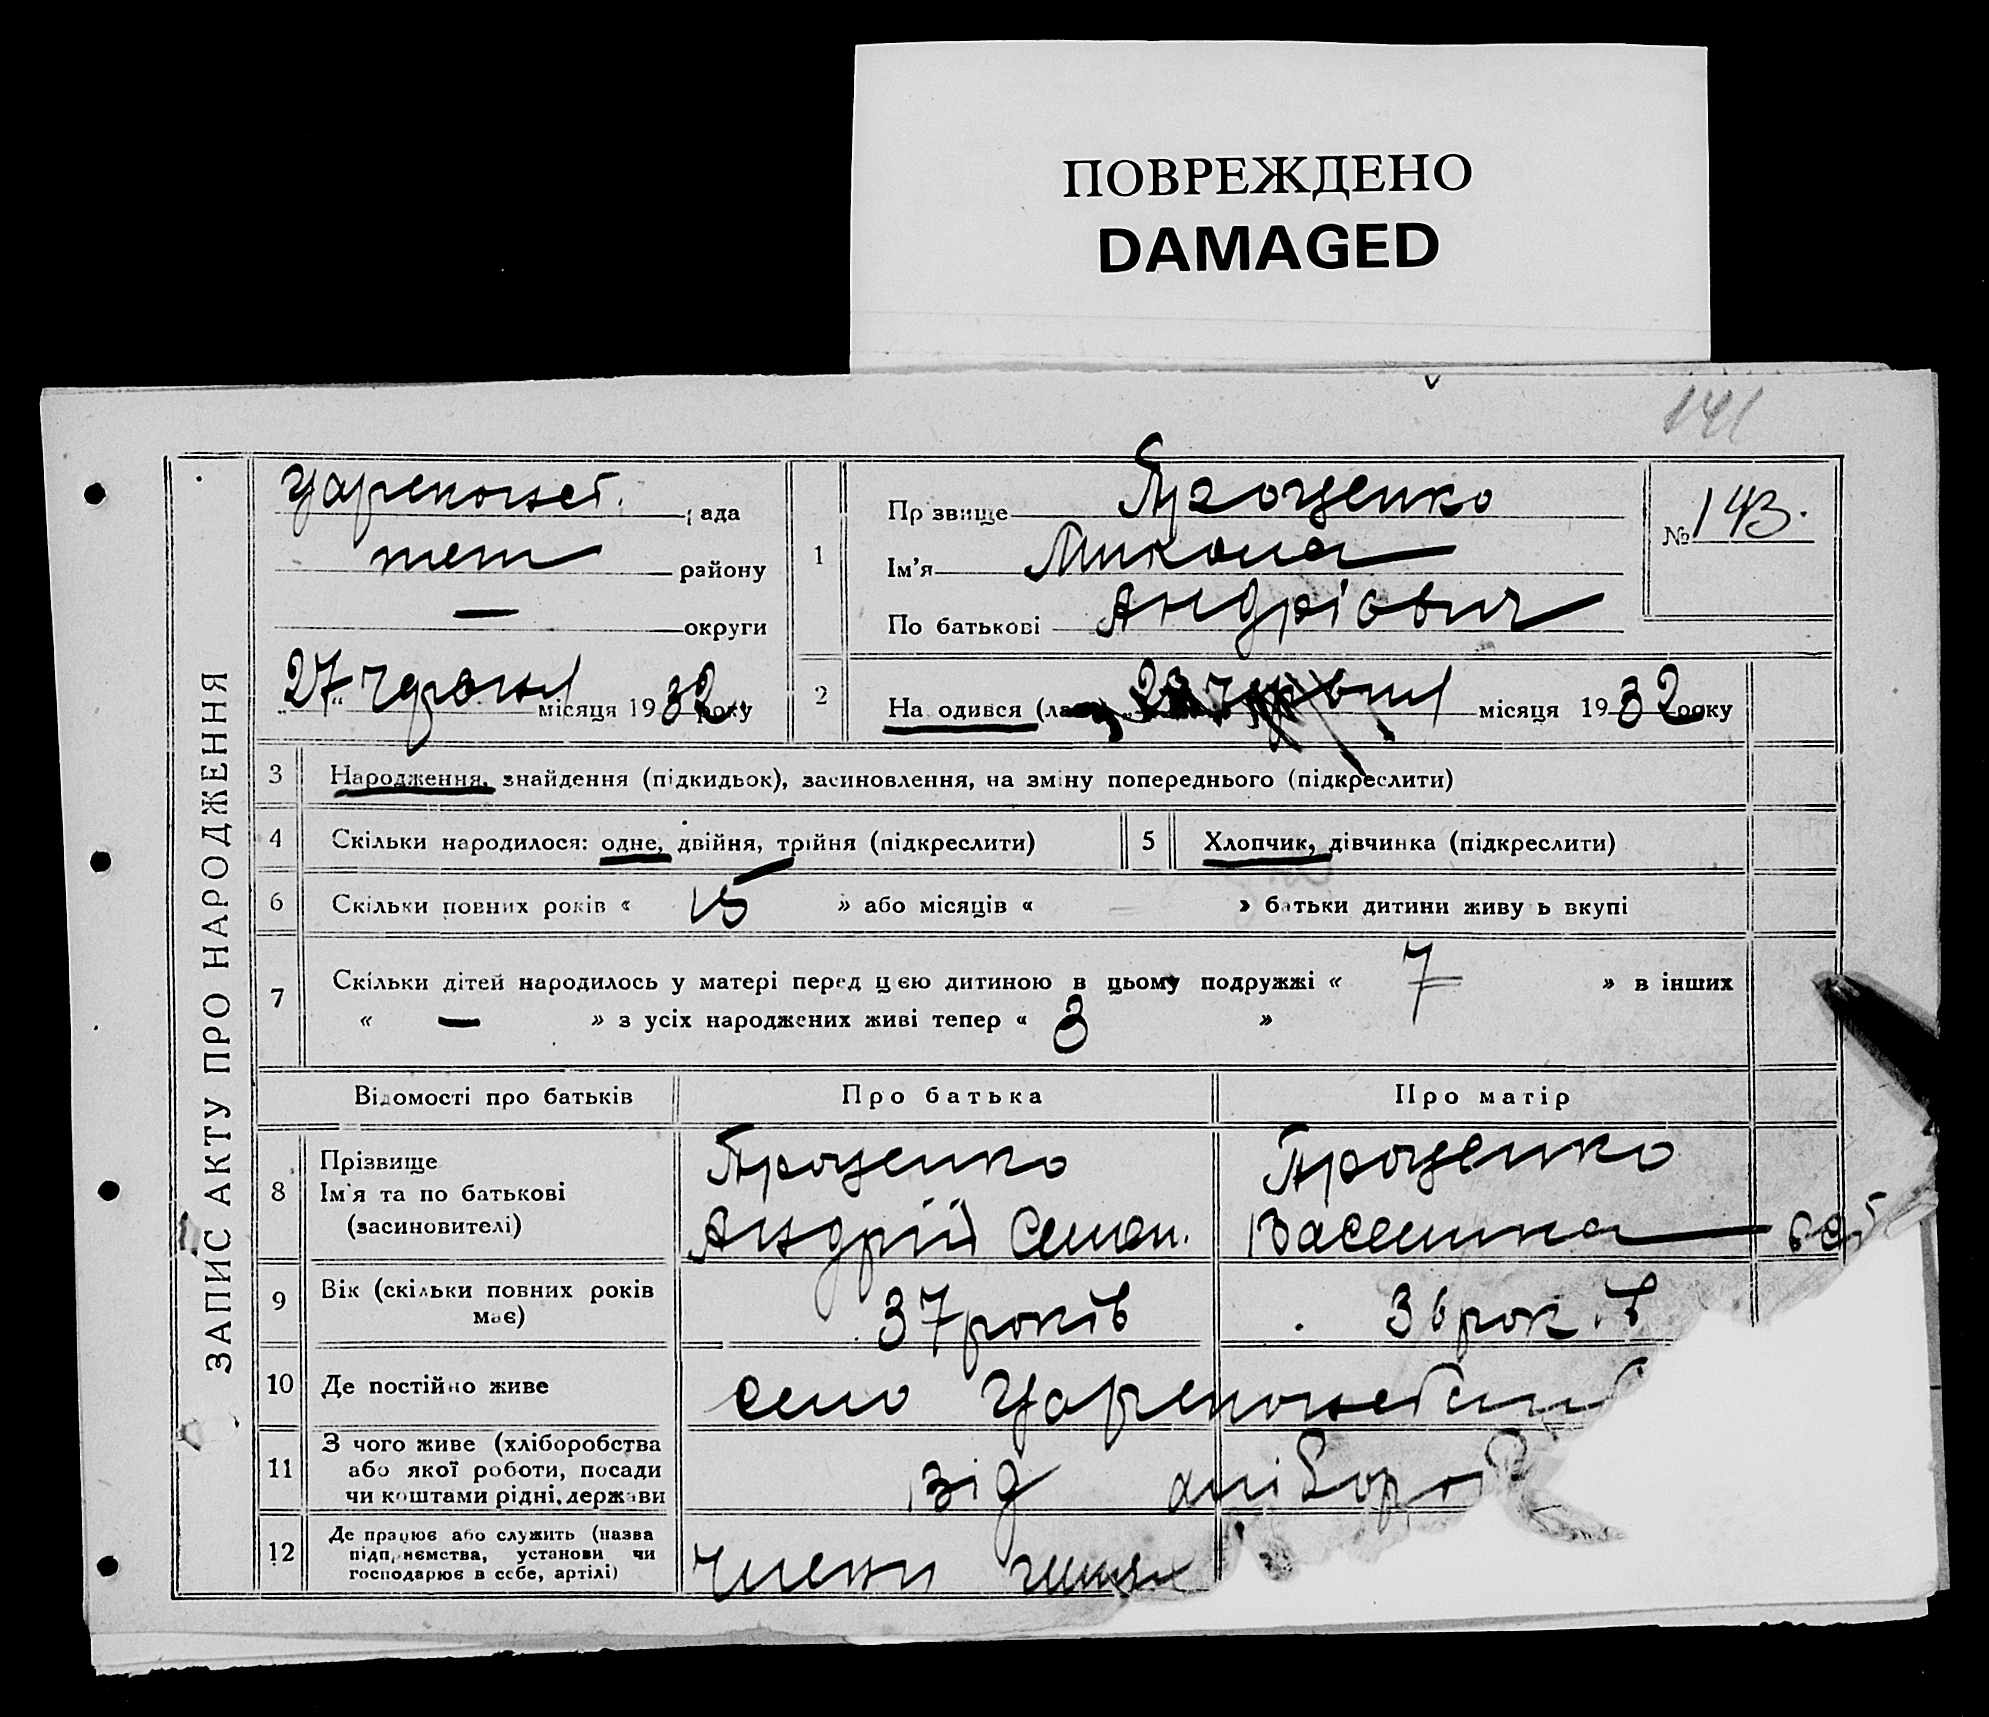 ПОВРЕЖДЕНО
DAMAGED
141
ЗАПИС АКТУ ПРО НАРОДЖЕННЯ
рада
району
—
округи
27 червня місяця 1932 року
1
Прізвище Проценко
Ім'я Микола
По батькові Андрійович
№ 143.
2
На одився 23 червня місяця 1932 року
3 Народження, знайдення (підкидьок), засиновлення, на зміну попереднього (підкреслити)
4 Скільки народилося: одне, двійня, трійня (підкреслити)
5 Хлопчик, дівчинка (підкреслити)
6 Скільки повних років « 15 » або місяців « — » батьки дитини живуть вкупі
7 Скільки дітей народилось у матері перед цією дитиною в цьому подружжі « 7 » в інших
« — » з усіх народжених живі тепер « 3 »
Відомості про батьків Про батька Про матір
8 Прізвище
Ім'я та по батькові
(засиновителі)
Проценко
Андрій Семен.
Проценко
Василина
9 Вік (скільки повних років
має)
37 років
36 років
10 Де постійно живе
село
11 З чого живе (хліборобства
або якої роботи, посади
чи коштами рідні, держави
від хлібороб
12 Де працює або служить (назва
підприємства, установи чи
господарює в себе, артілі)
члени